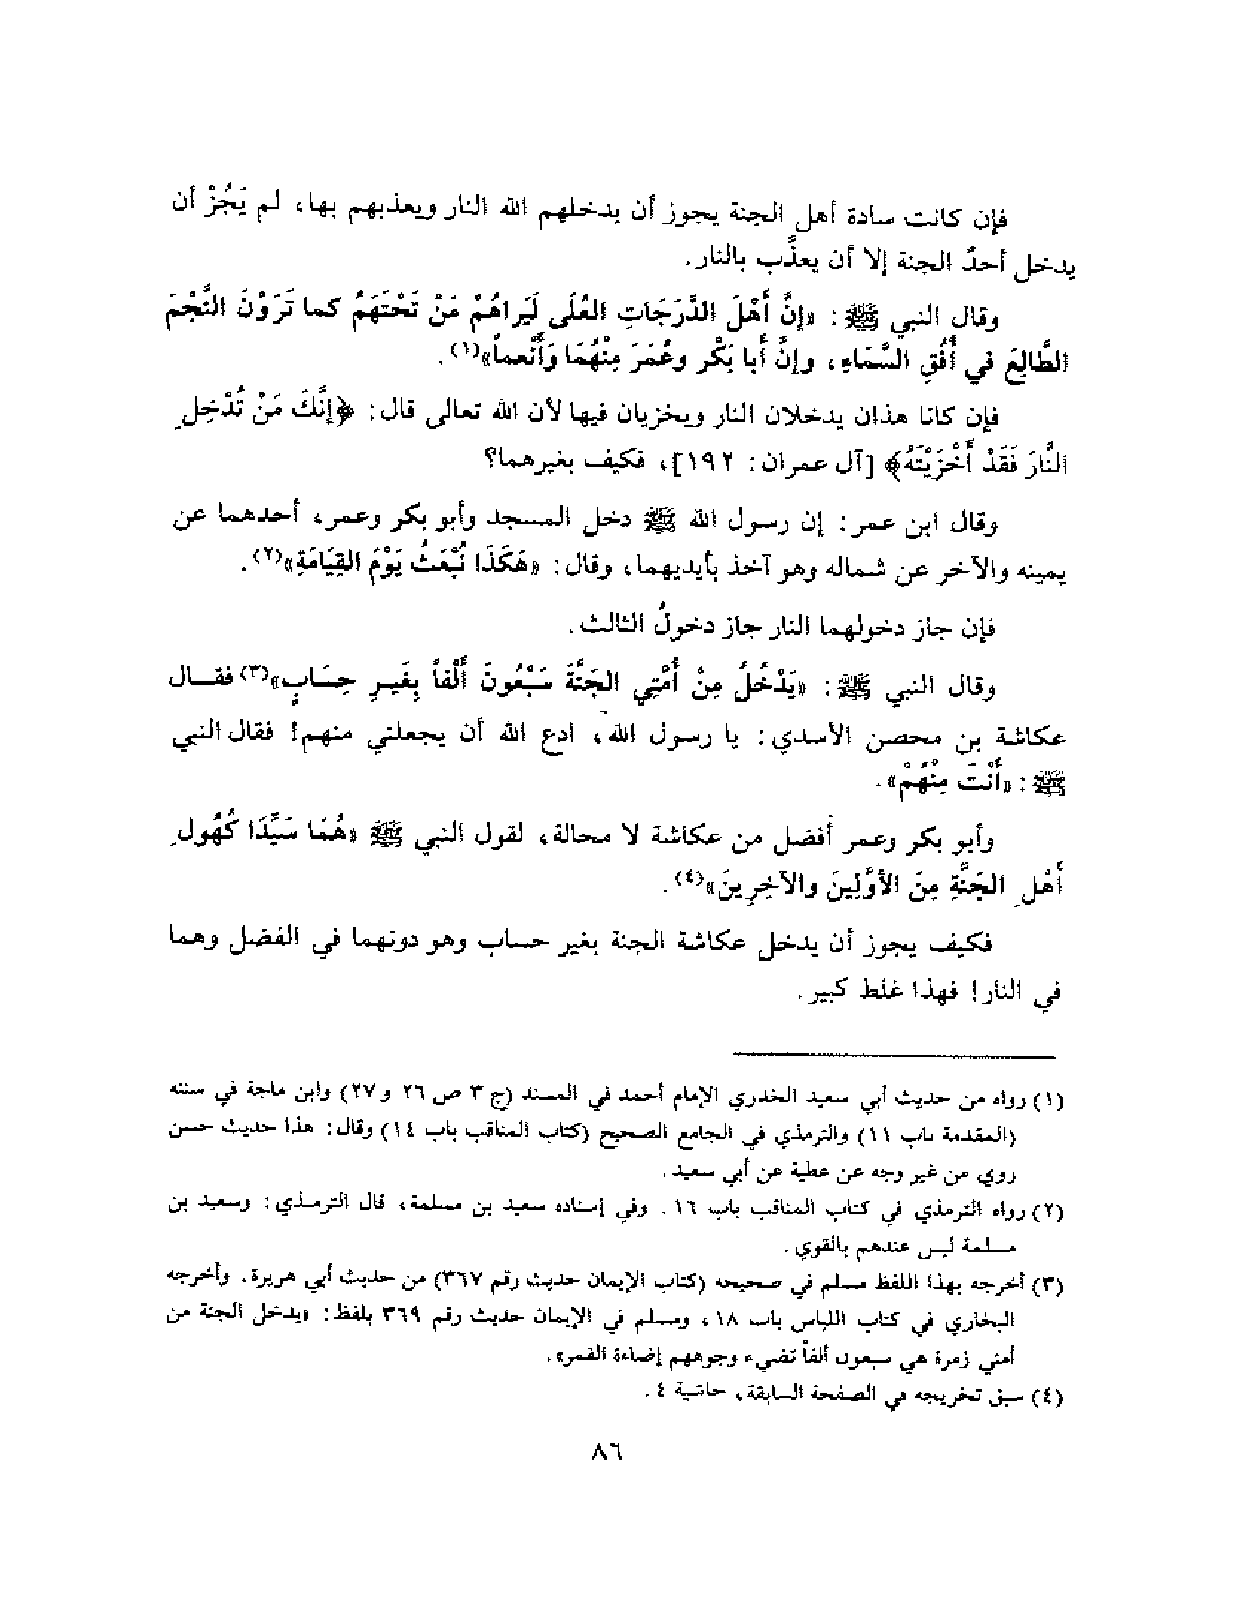 فإن كانت سادة أهل الجنة يجوز أن يدخلهم الله النار ويعذبهم بها، لم يَجُزْ أن
يدخل أحدٌ الجنة إلا أن يعذَّب بالنار.
وقال النبي ﷺ : «إنَّ أَهْلَ الدَّرَجَاتِ العُلَى لَيَراهُمْ مَنْ تَحْتَهَمُ كما تَرَوْنَ النَّجْمَ
الطَّالِعَ في أُفُقِ السَّمَاءِ، وإنَّ أبا بَكْر وعُمَرَ مِنْهُمَا وَأَنْعماً»(١).
فإن كانا هذان يدخلان النار ويخزيان فيها لأن الله تعالى قال: ﴿إنَّكَ مَنْ تُدْخِلِ
النَّارَ فَقَدْ أَخْزَيْتَهُ﴾ [آل عمران: ١٩٢]، فكيف بغيرهما؟
وقال ابن عمر: إن رسول الله ﷺ دخل المسجد وأبو بكر وعمر، أحدهما عن
يمينه والآخر عن شماله وهو آخذ بأيديهما، وقال: «هَكَذَا نُبْعَثُ يَوْمَ القِيَامَةِ»(٢).
فإن جاز دخولهما النار جاز دخولُ الثالث.
وقال النبي ﷺ : «يَدْخُلُ مِنْ أُمَّتِي الجَنَّةَ سَبْعُونَ أَلْفاً بِغَيرِ حِسَابٍ»(٣) فقال
عكاشة بن محصن الأسدي: يا رسول الله، ادع الله أن يجعلني منهم! فقال النبي
ﷺ : «أَنْتَ مِنْهُمْ».
وأبو بكر وعمر أفضل من عكاشة لا محالة، لقول النبي ﷺ «هُمَا سَيِّدَا كُهُولِ
أَهْلِ الجَنَّةِ مِنَ الأوَّلِينَ والآخِرِينَ»(٤).
فكيف يجوز أن يدخل عكاشة الجنة بغير حساب وهو دونهما في الفضل وهما
في النار! فهذا غلط كبير.
(١) رواه من حديث أبي سعيد الخدري الإمام أحمد في المسند (ج ٣ ص ٢٦ و ٢٧) وابن ماجة في سننه
(المقدمة باب ١١) والترمذي في الجامع الصحيح (كتاب المناقب باب ١٤) وقال: هذا حديث حسن
روي من غير وجه عن عطية عن أبي سعيد.
(٢) رواه الترمذي في كتاب المناقب باب ١٦. وفي إسناده سعيد بن مسلمة، قال الترمذي: وسعيد بن
مسلمة ليس عندهم بالقوي.
(٣) أخرجه بهذا اللفظ مسلم في صحيحه (كتاب الإيمان حديث رقم ٣٦٧) من حديث أبي هريرة. وأخرجه
البخاري في كتاب اللباس باب ١٨، ومسلم في الإيمان حديث رقم ٣٦٩ بلفظ: «يدخل الجنة من
أمتي زمرة هي سبعون ألفاً تضيء وجوههم إضاءة القمر».
(٤) سبق تخريجه في الصفحة السابقة، حاشية ٤.
٨٦